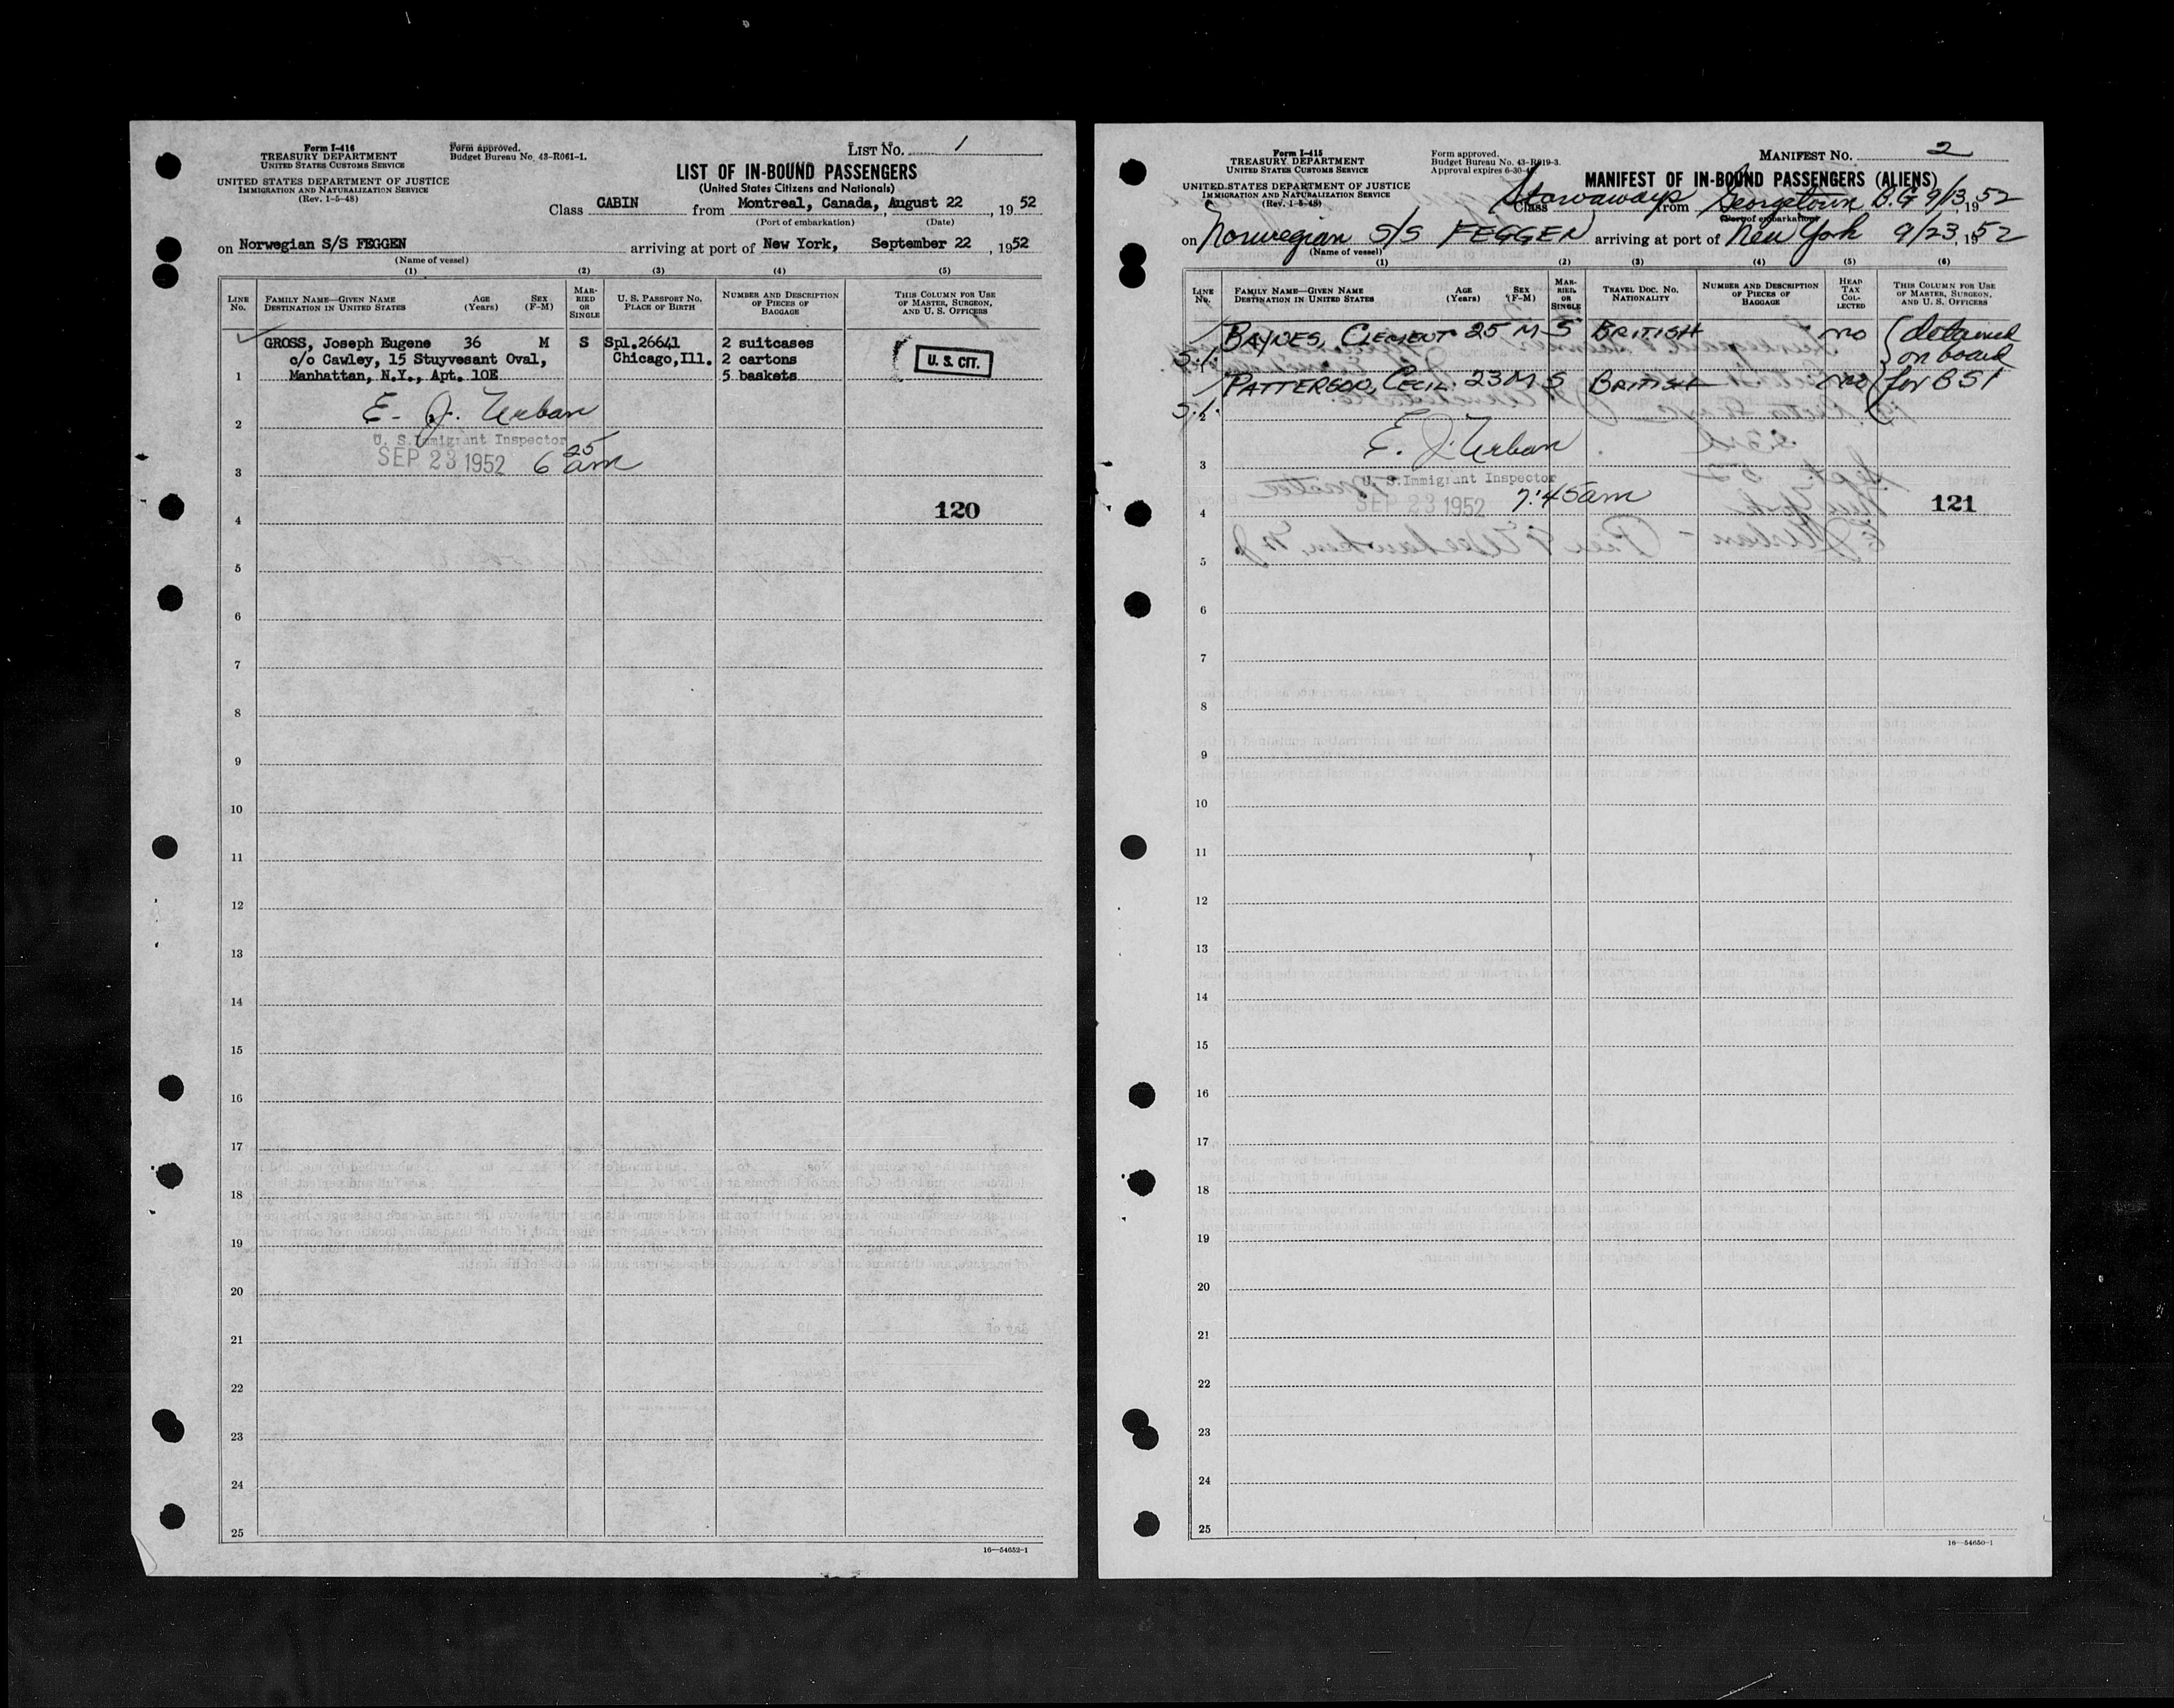 Form I-416
TREASURY DEPARTMENT
UNITED STATES CUSTOMS SERVICE
UNITED STATES DEPARTMENT OF JUSTICE
IMMIGRATION AND NATURALIZATION SERVICE
(Rev. 1-5-48)
Form approved.
Budget Bureau No. 43-R061-1.
LIST NO. 1
LIST OF IN-BOUND PASSENGERS
(United States Citizens and Nationals)
Class CABIN from Montreal, Canada, August 22, 1952
(Port of embarkation) (Date)
on Norwegian S/S FEGGEN arriving at port of New York, September 22, 1952
(Name of vessel)
(1) (2) (3) (4) (5)
LINE No. FAMILY NAME—GIVEN NAME DESTINATION IN UNITED STATES AGE (Years) SEX (F-M) MARRIED OR SINGLE U. S. PASSPORT NO. PLACE OF BIRTH NUMBER AND DESCRIPTION OF PIECES OF BAGGAGE THIS COLUMN FOR USE OF MASTER, SURGEON, AND U. S. OFFICERS
GROSS, Joseph Eugene 36 M S Spl.26641 2 suitcases
c/o Cawley, 15 Stuyvesant Oval, Chicago,Ill. 2 cartons U. S. CIT.
1 Manhattan, N.Y., Apt. 10E 5 baskets
E. J. Urban
2
U. S. Immigrant Inspector
SEP 23 1952 6 25 am
3
120
4
5
6
7
8
9
10
11
12
13
14
15
16
17
18
19
20
21
22
23
24
25
16—54652-1
Form I-415
TREASURY DEPARTMENT
UNITED STATES CUSTOMS SERVICE
UNITED STATES DEPARTMENT OF JUSTICE
IMMIGRATION AND NATURALIZATION SERVICE
(Rev. 1-5-48)
Form approved.
Budget Bureau No. 43-R019-3.
Approval expires 6-30-
MANIFEST NO. 2
MANIFEST OF IN-BOUND PASSENGERS (ALIENS)
Class Stowaways from Georgetown B.G 9/13, 1952
(Port of embarkation)
on Norwegian S/S FEGGEN arriving at port of New York 9/23, 1952
(Name of vessel)
(1) (2) (3) (4) (5) (6)
LINE No. FAMILY NAME—GIVEN NAME DESTINATION IN UNITED STATES AGE (Years) SEX (F-M) MARRIED OR SINGLE TRAVEL DOC. NO. NATIONALITY NUMBER AND DESCRIPTION OF PIECES OF BAGGAGE HEAD TAX COLLECTED THIS COLUMN FOR USE OF MASTER, SURGEON, AND U. S. OFFICERS
BAYNES, CLEMENT 25 M S BRITISH no detained
S.I. on board
PATTERSON, CECIL 23 M S BRITISH no for BSI
S.I.
2
E. J. Urban
3
U. S. Immigrant Inspector
SEP 23 1952 7:45am
4
121
5
6
7
8
9
10
11
12
13
14
15
16
17
18
19
20
21
22
23
24
25
16—54650-1